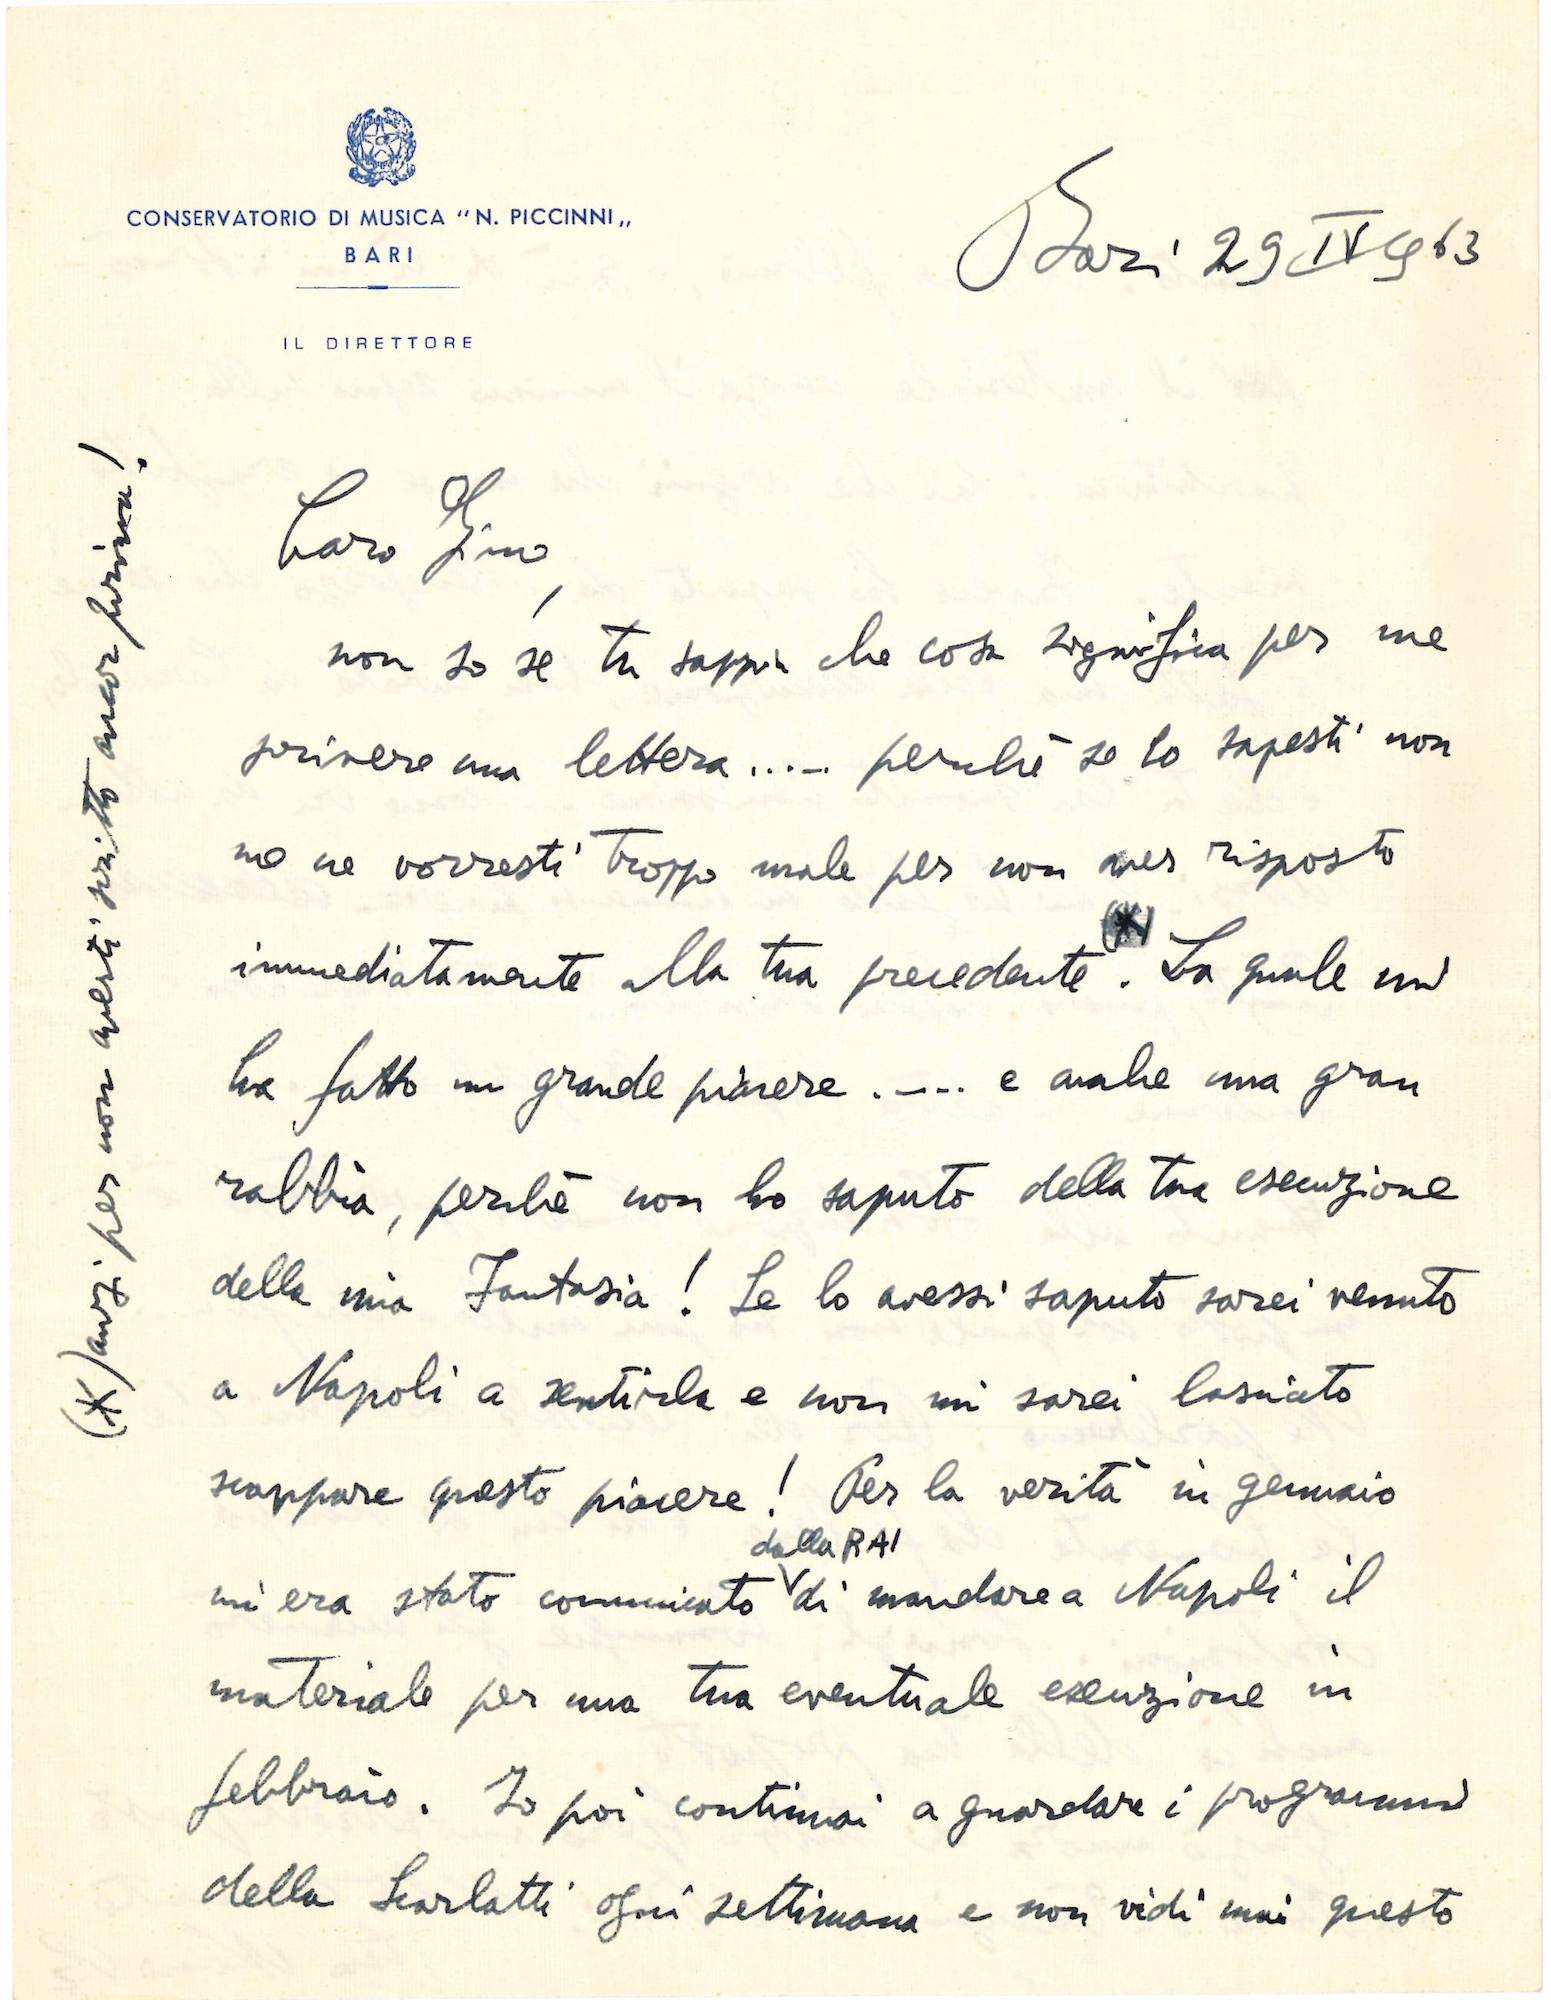 CONSERVATORIO DI MUSICA "N. PICCINNI„
BARI
IL DIRETTORE
Bari 29 IV 963
Caro Gino,
non so se tu sappia che cosa significa per me
scrivere una lettera..... perchè se lo sapesti non
me ne vorresti troppo male per non aver risposto
immediatamente alla tua precedente (*). La quale mi
ha fatto un grande piacere ..... e anche una gran
rabbia, perchè non ho saputo della tua esecuzione
della mia Fantasia! Se lo avessi saputo sarei venuto
a Napoli a sentirla e non mi sarei lasciato
scappare questo piacere! Per la verità in gennaio
dalla RAI
mi era stato comunicato di mandare a Napoli il
materiale per una tua eventuale esecuzione in
febbraio. Io poi continuai a guardare i programmi
della Scarlatti ogni settimana e non vidi mai questo
(*) anzi per non averti scritto ancor prima!